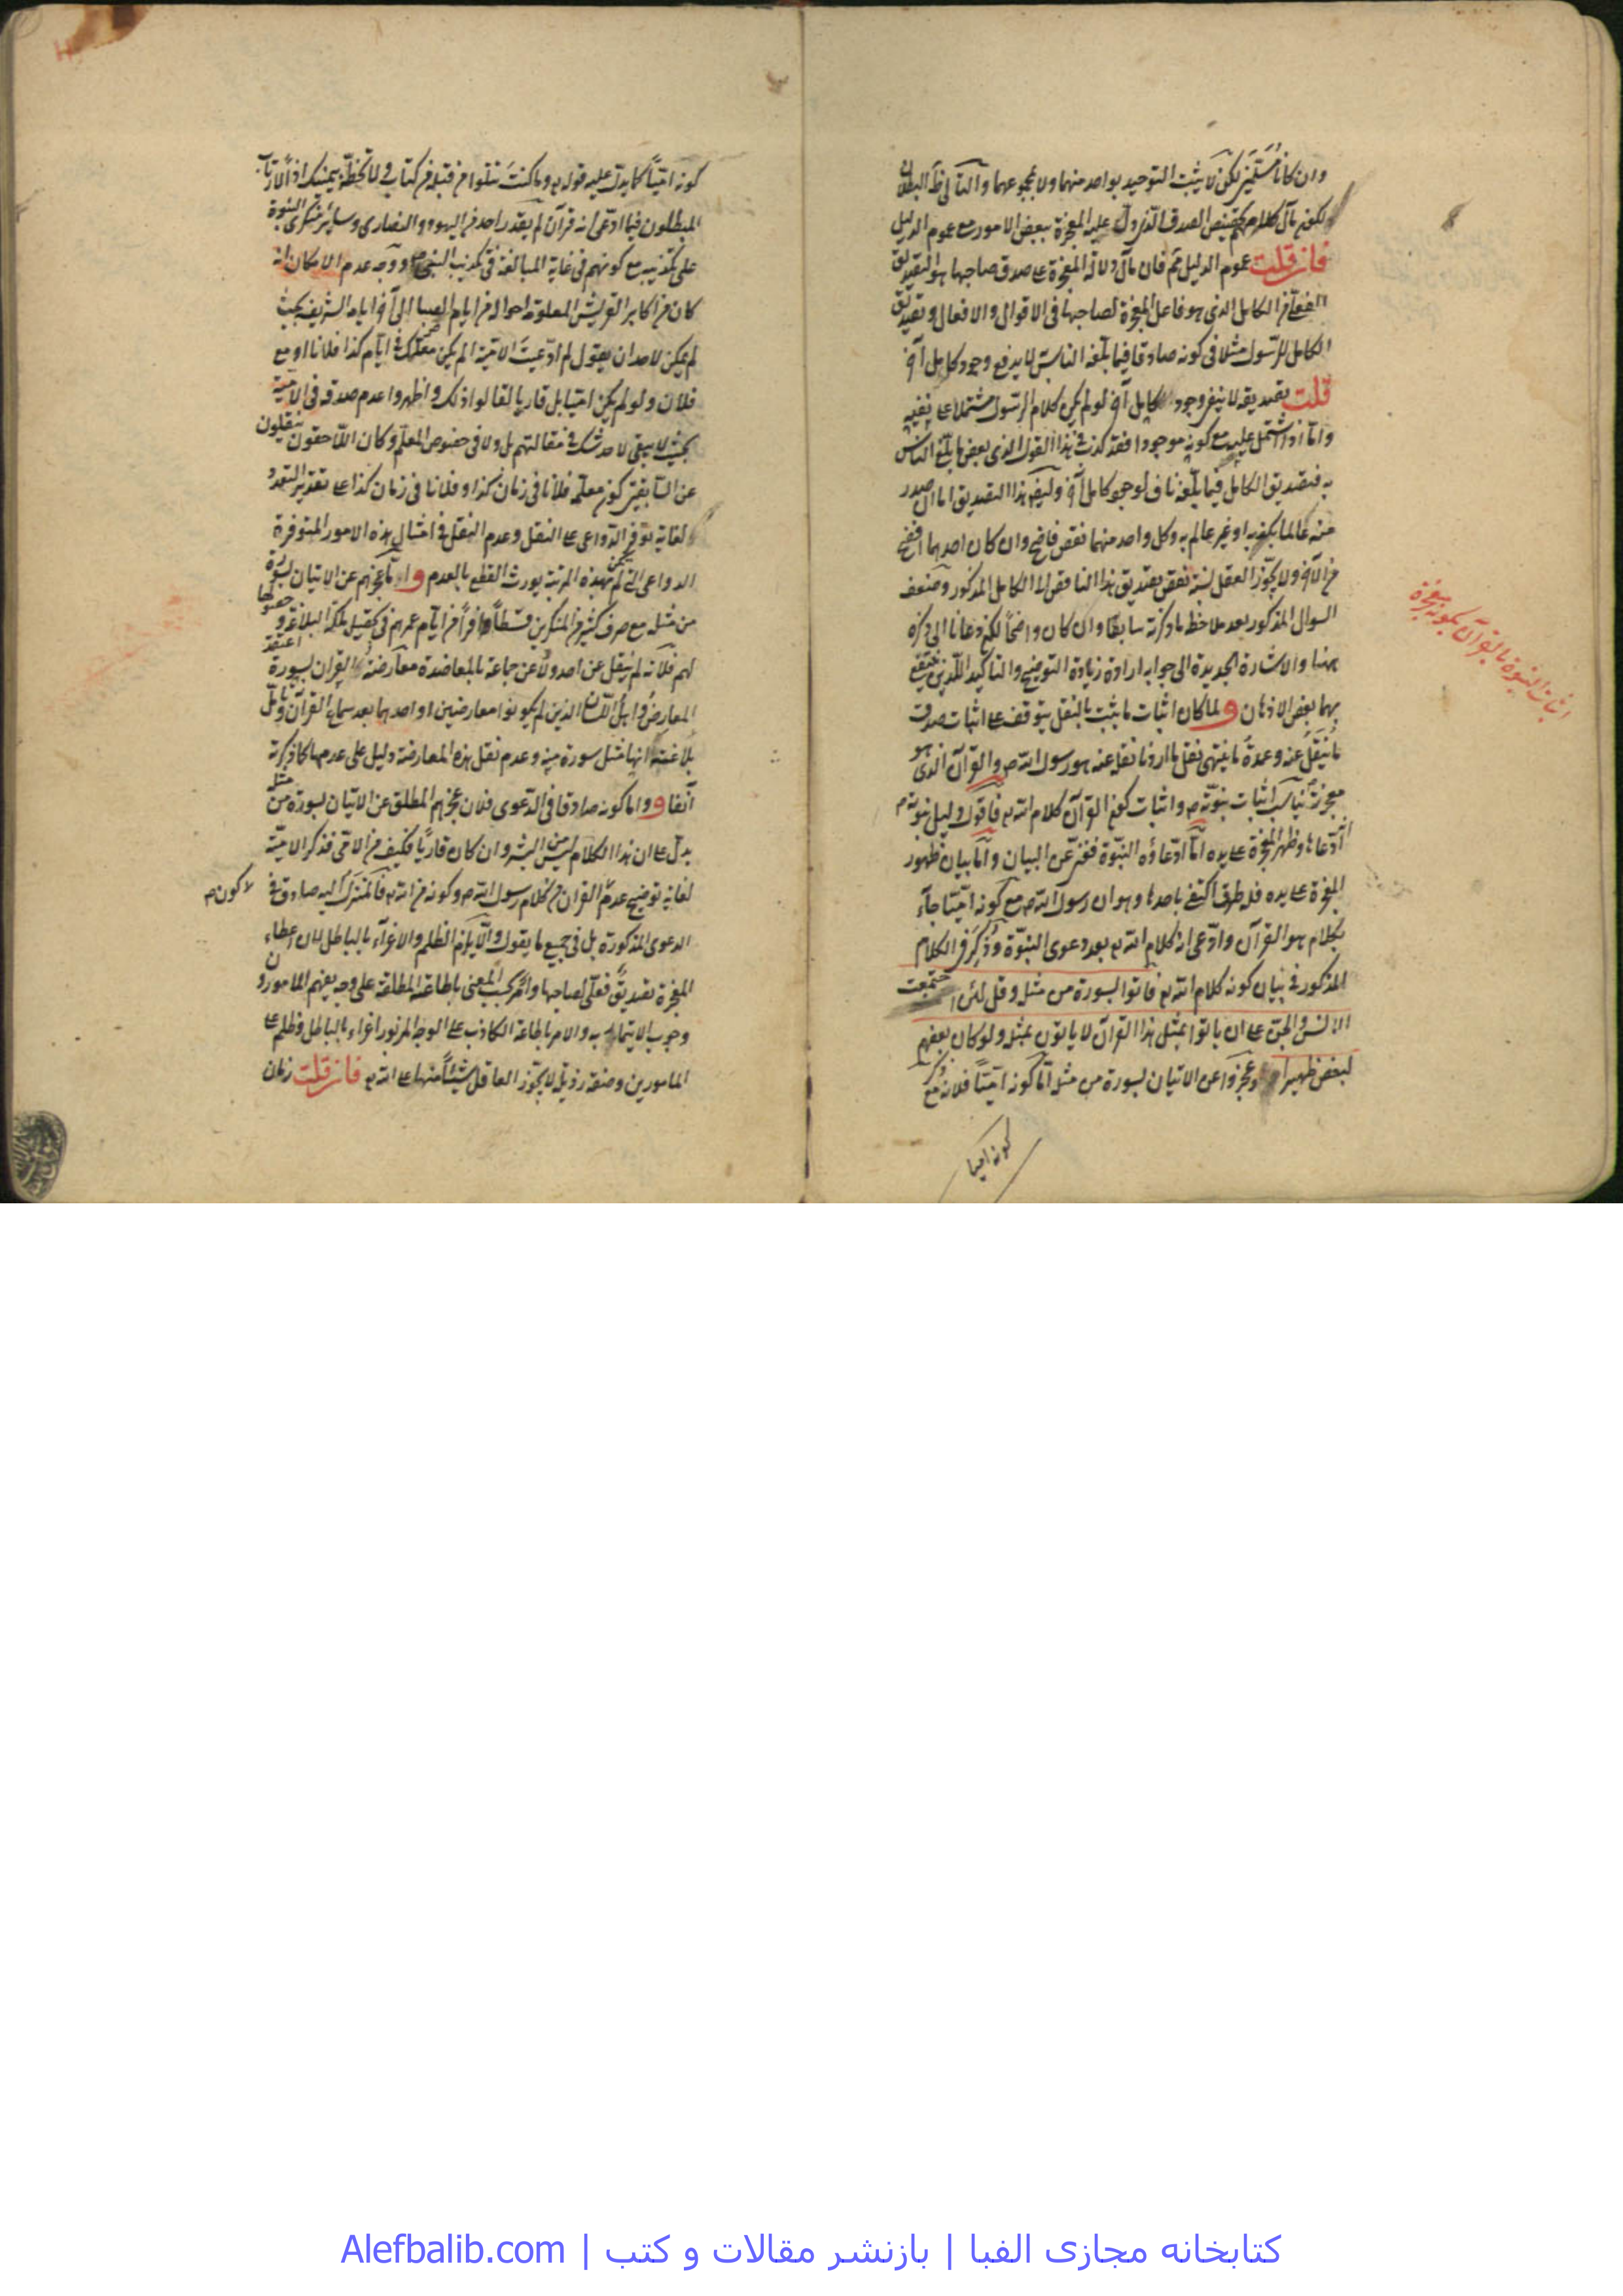 وان كانا مستلزمين لكن لا يثبت التوحيد بواحد منهما ولا بمجموعهما والتالى ظ البطلان
لكون مآل كلامهم تخصيص الصدق الذى دل عليه المعجزة ببعض الامور مع عموم الدليل
فان قلت عموم الدليل ثم فان مآل دلالة المعجزة ع صدق صاحبها هو التصديق
الفعلى من الكامل الذى هو فاعل المعجزة لصاحبها فى الاقوال والافعال وتصديق
الكامل للرسول مثلا فى كونه صادقا فيما بلغه الناس لا يدفع وجود كامل آخر
قلت تصديقه لا ينفى وجود كامل آخر لو لم يكن كلام الرسول مشتملا ع نفيه
واما اذا اشتمل عليه مع كونه موجودا فقد كذب فى هذا القول الذى بعض ما بلغ الناس
به فتصديق الكامل فيما بلغه ناف لوجود كامل آخر وكيف هذا التصديق اما ان صدر
منه عالما بكذبه او غير عالم به وكل واحد منهما نقص فاضح وان كان احدهما افضح
من الآخر ولا يجوّز العقل نسبة نقص تصديق هذا الناقص الى الكامل المذكور وضعف
السوال المذكور بعد ملاحظة ما ذكرته سابقا وان كان واضحا لكن دعانا الى ذكره
ههنا والاشارة الجديدة الى جوابه ارادة زيادة التوضيح والتاكيد اللذين ينتفع
بهما بعض الاذهان ولما كان اثبات ما يثبت بالنقل يتوقف ع اثبات صدق
ما ينقل عنه وعمدة ما ينتهى نقل ما اردنا نقله عنه هو رسول الله ص والقرآن الذى هو
معجزته ناسب اثبات نبوته ص واثبات كون القرآن كلام الله تع فاقول دليل نبوته ص
ادّعاها وظهر المعجزة ع يده اما ادّعاؤه النبوّة فغنى عن البيان واما بيان ظهور
المعجزة ع يده فله طرق اكتفى باحدها وهو ان رسول الله ص مع كونه اميّا جاء
بكلام هو القرآن وادّعى انه كلام الله تع بعد دعوى النبوّة وذكر فى الكلام
المذكور فى بيان كونه كلام الله تع فاتوا بسورة من مثله وقل لئن اجتمعت
الانس والجن ع ان ياتوا بمثل هذا القرآن لا ياتون بمثله ولو كان بعضهم
لبعض ظهيرا وعجزوا عن الاتيان بسورة من مثله اما كونه اميّا فلانه مع
كونه اميا
اثبات النبوة بالقرآن بكونه معجزة
كونه اميّا كما يدل عليه قوله تع وما كنت تتلوا من قبله من كتاب ولا تخطه بيمينك اذا لارتاب
المبطلون فيما ادّعى انه قرآن لم يقدر احد من اليهود والنصارى وسائر منكرى النبوة
على تكذيبه مع كونهم فى غاية المبالغة فى تكذيب النبى ص ووجه عدم الامكان انه
كان من اكابر القريش المعلومة احواله من ايام الصبا الى آخر ايامه الشريفة بحيث
لم يمكن لاحد ان يقول لم ادّعيت الامية الم يكن معلمك فى ايام كذا فلانا او مع
فلان ولو لم يكن اميا بل قاريا لقالوا ذلك واظهروا عدم صدقه فى الامية
بحيث لا يبقى لاحد شك فى مقالتهم بل ولا فى خصوص المعلم وكان اللاحقون ينقلون
عن السابقين كون معلمه فلانا فى زمان كذا وفلانا فى زمان كذا ع تقدير التعدد
لغاية توفر الدواعى ع النقل وعدم النقل فى امثال هذه الامور المتوفرة
الدواعى التى لم تكن بهذه المرتبة يورث القطع بالعدم واما عجزهم عن الاتيان بسورة
من مثله مع صرف كثير من المنكرين قسطا وافرا من ايام عمرهم فى تحصيل ملكة البلاغة وحصولها
لهم فلانه لم ينقل عن احد ولا عن جماعة بالمعاضدة معارضة القرآن بسورة اعتقد
المعارض او اهل اللسان الذين لم يكونوا معارضين او احدهما بعد سماع القرآن وتامل
بلاغته انها مثل سورة منه وعدم نقل هذه المعارضة دليل على عدمها كما ذكرته
آنفا واما كونه صادقا فى الدعوى فلان عجزهم المطلق عن الاتيان بسورة من مثله
يدل ع ان هذا الكلام ليس من البشر وان كان قاريا فكيف من الامى فذكر الامية
لغاية توضيح عدم القرآن من كلام رسول الله ص وكونه من الله تع فالمنزل اليه صادق فى
لا كونه م
الدعوى المذكورة بل فى جميع ما يقول والا يلزم الظلم والاغراء بالباطل لان اعطاء
المعجزة تصديق فعلى لصاحبها وامر بحسب المعنى باطاعته المطلقة على وجه يفهم المامورون
وجوب الايتمار به والامر باطاعة الكاذب ع الوجه المزبور اغراء بالباطل وظلم ع
المامورين وصفة رذيلة لا يجوّز العاقل شيئا منها ع الله تع فان قلت زمان
کتابخانه مجازی الفبا | بازنشر مقالات و کتب | Alefbalib.com